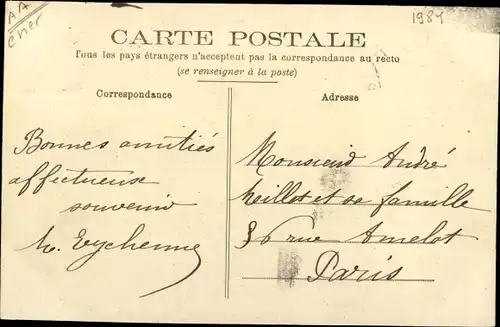 AA
Cher
1984
CARTE POSTALE
Tous les pays étrangers n'acceptent pas la correspondance au recto
(se renseigner à la poste)
Correspondance
Adresse
Bonnes amitiés
affectueux
souvenir
Monsieur André
et sa famille
86 rue Amelot
Paris